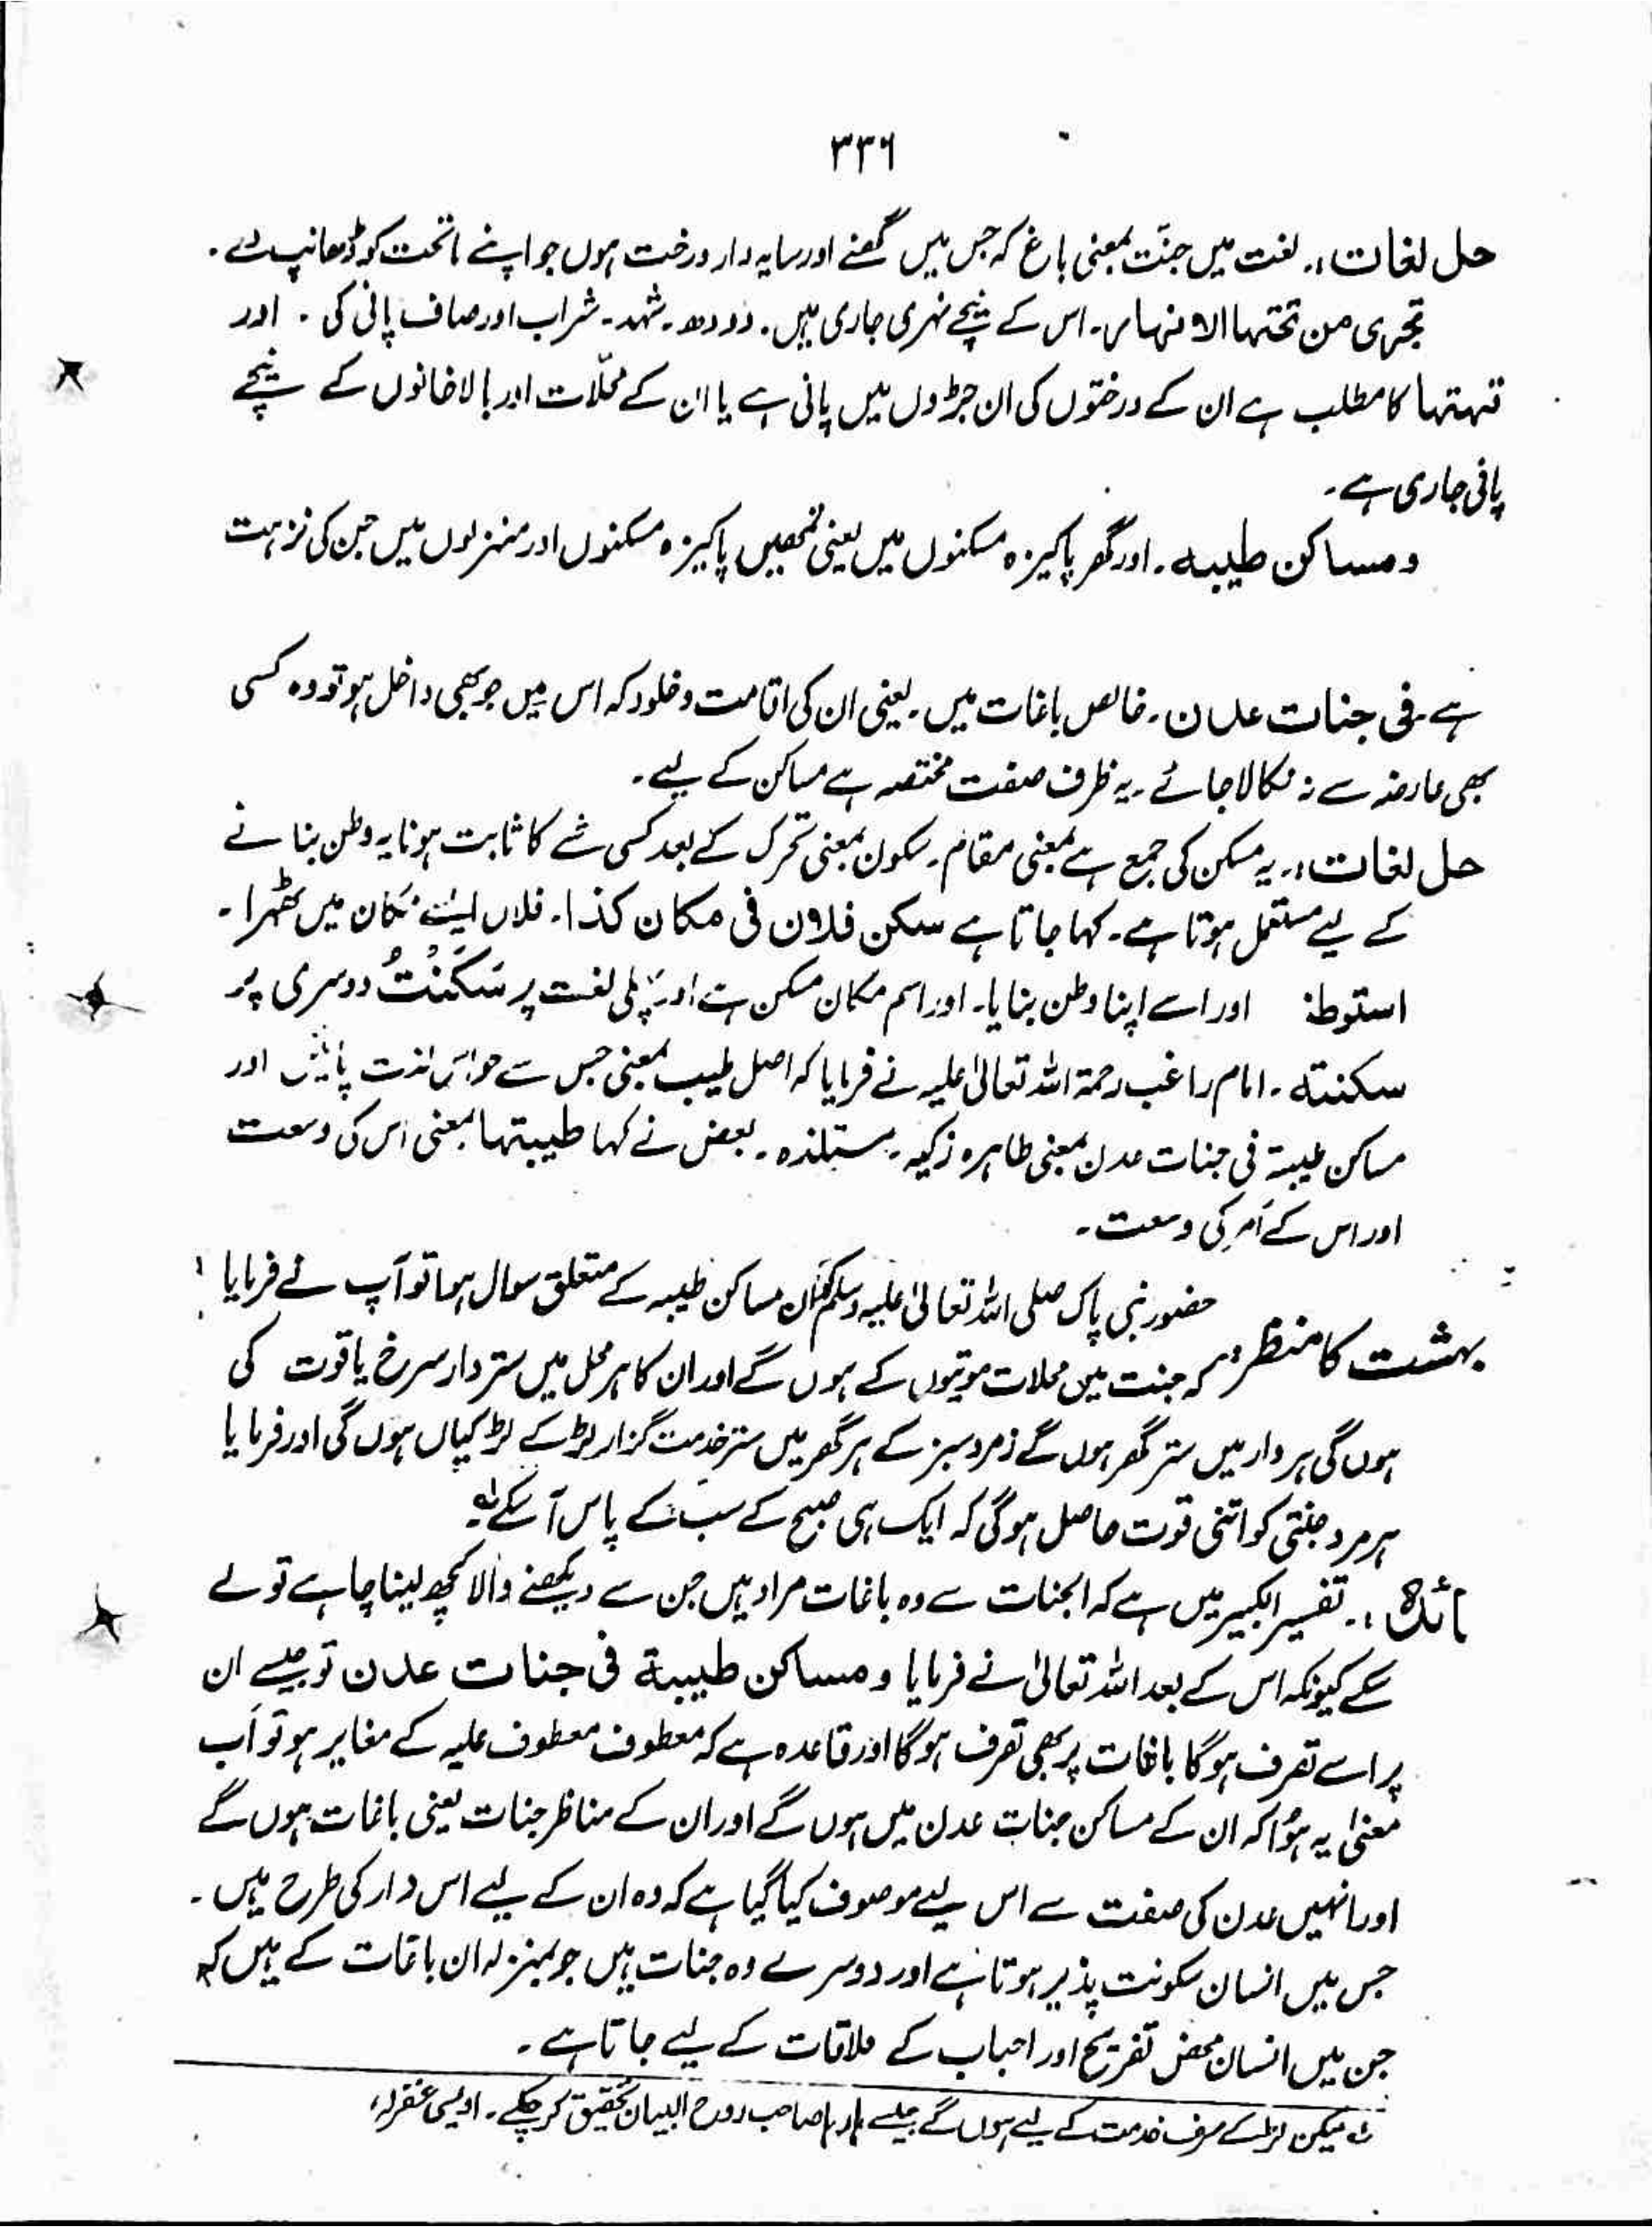 ۳۳۶
حل لغات:۔ لغت میں جنّت بمعنی باغ کہ جس میں گھنے اور سایہ دار درخت ہوں جو اپنے ماتحت کو ڈھانپ لے۔
تجری من تحتہا الانہار۔ اس کے نیچے نہری جاری ہیں۔ دودھ۔ شہد۔ شراب اور صاف پانی کی ۔ اور
تہتہا کا مطلب ہے ان کے درختوں کی ان جڑوں میں پانی ہے یا ان کے محلّات اور بالاخانوں کے نیچے
پانی جاری ہے۔
و مساکن طیبہ۔ اور گھر پاکیزہ مسکنوں میں یعنی تمھیں پاکیزہ مسکنوں اور منزلوں میں جن کی نزہت
ہے۔ فی جنات عدن۔ خالص باغات میں۔ یعنی ان کی اقامت و خلود کہ اس میں جو بھی داخل ہو تو وہ کسی
بھی عارضہ سے نہ نکالا جائے۔ یہ ظرف صفت مختصہ ہے مساکن کے لیے۔
حل لغات:۔ یہ مسکن کی جمع ہے بمعنی مقام۔ سکون بمعنی تحرک کے بعد کسی شے کا ثابت ہونا یہ وطن بنانے
کے لیے مستعمل ہوتا ہے۔ کہا جاتا ہے سکن فلان فی مکان کذا۔ فلاں ایسے مکان میں ٹھہرا۔
استوطنہ اور اسے اپنا وطن بنایا۔ اور اسم مکان مسکن ہے اور پہلی لغت پر سَکَنْتُ دوسری پر
سکنتہ۔ امام راغب رحمۃ اللہ تعالیٰ علیہ نے فرمایا کہ اصل طیب بمعنی جس سے حواس لذت پائیں اور
مساکن طیبۃ فی جنات عدن بمعنی طاہرہ زکیہ۔ مستلذہ۔ بعض نے کہا طیبتہا بمعنی اس کی وسعت
اور اس کے امر کی وسعت۔
حضور نبی پاک صلی اللہ تعالیٰ علیہ وسلم کو ان مساکن طیبہ کے متعلق سوال ہوا تو آپ نے فرمایا
بہشت کا منظر:۔ کہ جنت میں محلات موتیوں کے ہوں گے اور ان کا ہر محل میں ستر دار سرخ یاقوت کی
ہوں گی ہر دار میں ستر گھر ہوں گے زمرد سبز کے ہر گھر میں ستر خدمت گزار لڑکے لڑکیاں ہوں گی اور فرمایا
ہر مرد جنتی کو اتنی قوت حاصل ہو گی کہ ایک ہی صبح کے سب کے پاس آ سکے لہ
ائدہ:۔ تفسیر الکبیر میں ہے کہ الجنات سے وہ باغات مراد ہیں جن سے دیکھنے والا کچھ لینا چاہے تو لے
سکے کیونکہ اس کے بعد اللہ تعالیٰ نے فرمایا و مساکن طیبۃ فی جنات عدن تو جیسے ان
پر اسے تصرف ہو گا باغات پر بھی تصرف ہو گا اور قاعدہ ہے کہ معطوف معطوف علیہ کے مغایر ہو تو اب
معنیٰ یہ ہؤا کہ ان کے مساکن جنات عدن میں ہوں گے اور ان کے مناظر جنات یعنی باغات ہوں گے
اور انہیں عدن کی صفت سے اس لیے موصوف کیا گیا ہے کہ وہ ان کے لیے اس دار کی طرح ہیں۔
جس میں انسان سکونت پذیر ہوتا ہے اور دوسرے وہ جنات ہیں جو بمنزلہ ان باغات کے ہیں کہ
جن میں انسان محض تفریح اور احباب کے ملاقات کے لیے جاتا ہے۔
لہ لیکن لڑکے صرف خدمت کے لیے ہوں گے جیسے بارہا صاحب روح البیان تحقیق کر چکے۔ اویسی غفرلہ،